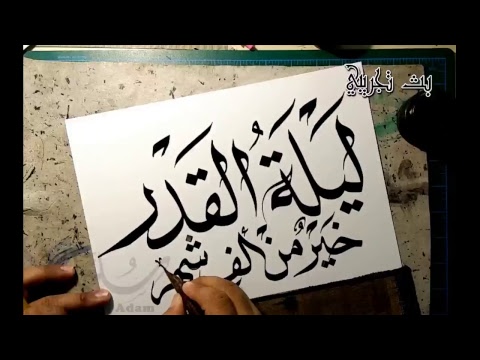 بث تجريبي
لَيْلَةُ الْقَدْرِ
خَيْرٌ مِنْ أَلْفِ شَهْر
Adam